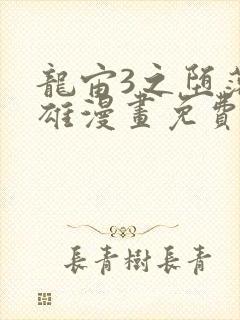 龍宙3之堕落
雄漫畫免費
長青樹長青